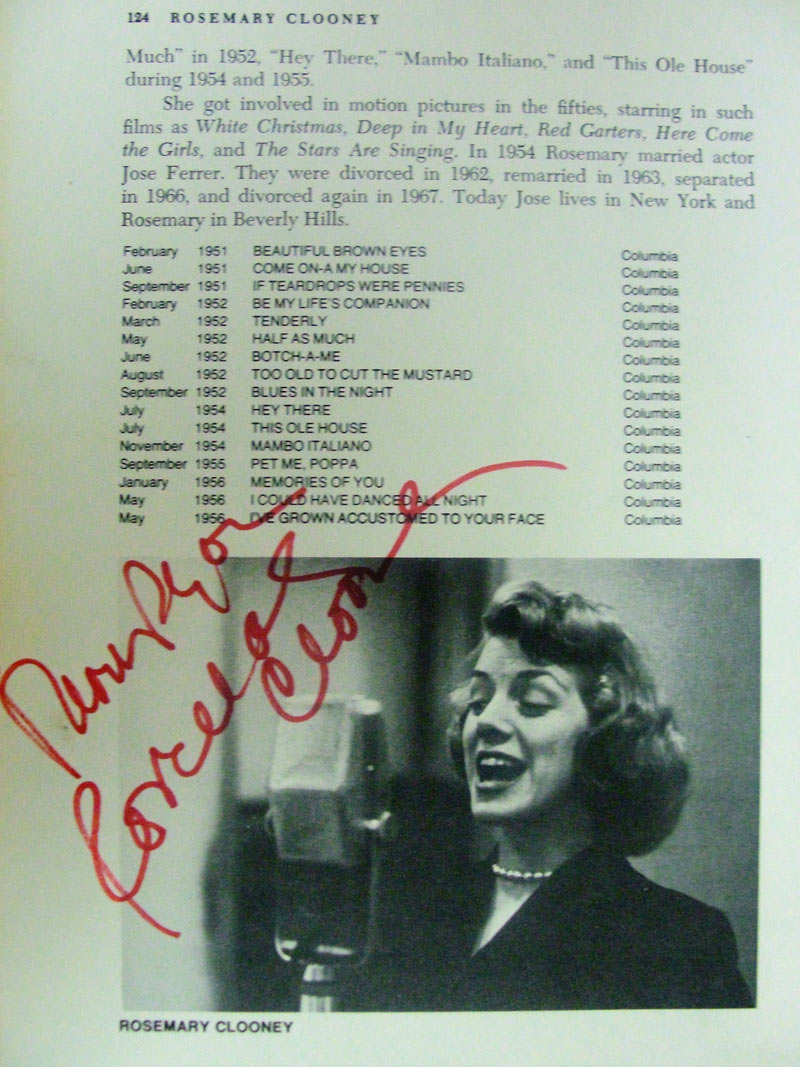 124 ROSEMARY CLOONEY
Much” in 1952, “Hey There,” “Mambo Italiano,” and “This Ole House”
during 1954 and 1955.
She got involved in motion pictures in the fifties, starring in such
films as White Christmas, Deep in My Heart, Red Garters, Here Come
the Girls, and The Stars Are Singing. In 1954 Rosemary married actor
Jose Ferrer. They were divorced in 1962, remarried in 1963, separated
in 1966, and divorced again in 1967. Today Jose lives in New York and
Rosemary in Beverly Hills.
February 1951 BEAUTIFUL BROWN EYES Columbia
June 1951 COME ON-A MY HOUSE Columbia
September 1951 IF TEARDROPS WERE PENNIES Columbia
February 1952 BE MY LIFE'S COMPANION Columbia
March 1952 TENDERLY Columbia
May 1952 HALF AS MUCH Columbia
June 1952 BOTCH-A-ME Columbia
August 1952 TOO OLD TO CUT THE MUSTARD Columbia
September 1952 BLUES IN THE NIGHT Columbia
July 1954 HEY THERE Columbia
July 1954 THIS OLE HOUSE Columbia
November 1954 MAMBO ITALIANO Columbia
September 1955 PET ME, POPPA Columbia
January 1956 MEMORIES OF YOU Columbia
May 1956 I COULD HAVE DANCED ALL NIGHT Columbia
May 1956 I'VE GROWN ACCUSTOMED TO YOUR FACE Columbia
Clooney
ROSEMARY CLOONEY